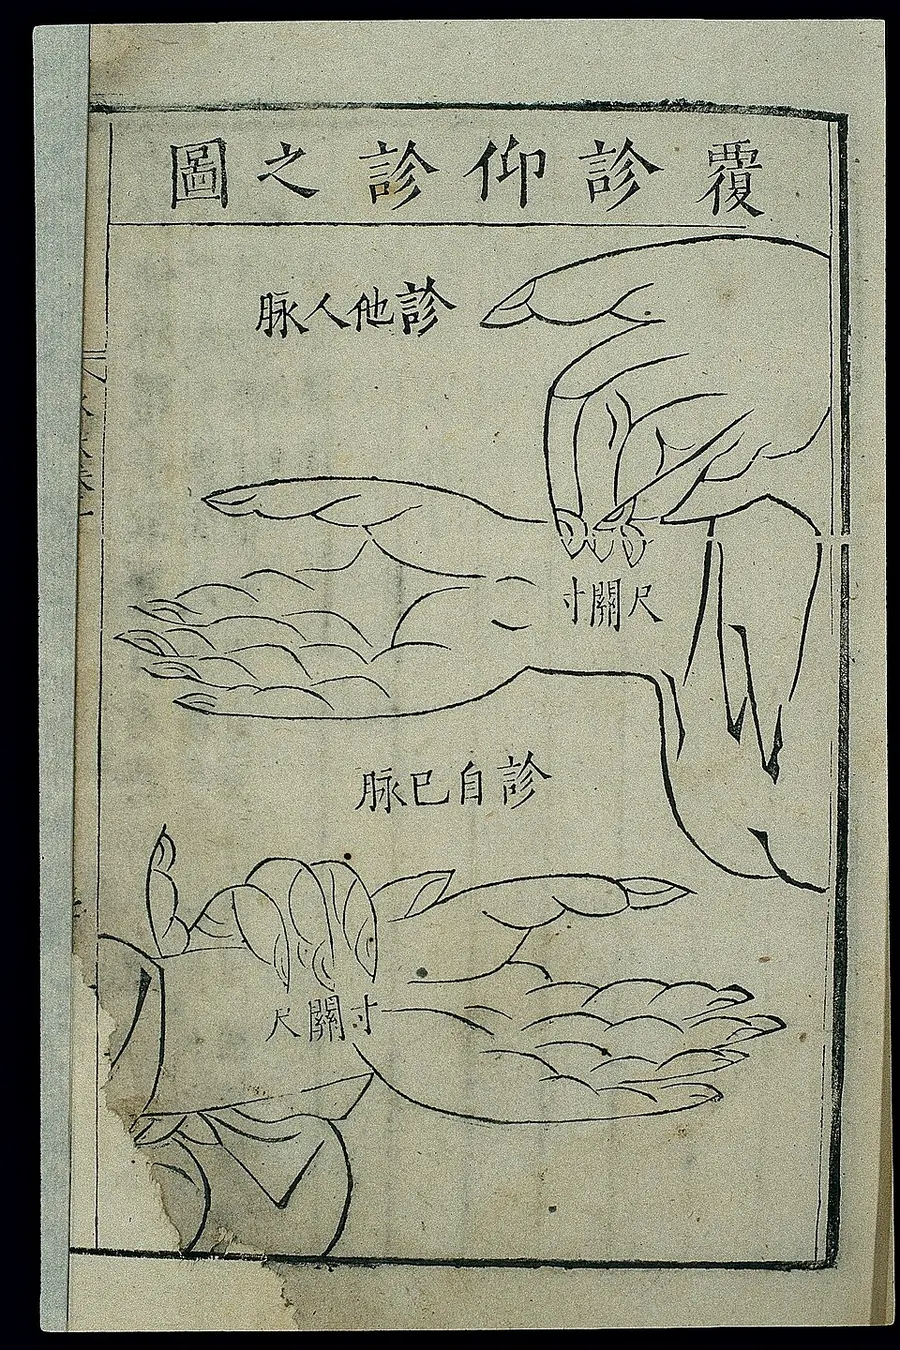 覆診仰診之圖
診他人脉
寸關尺
診自巳脉
尺關寸